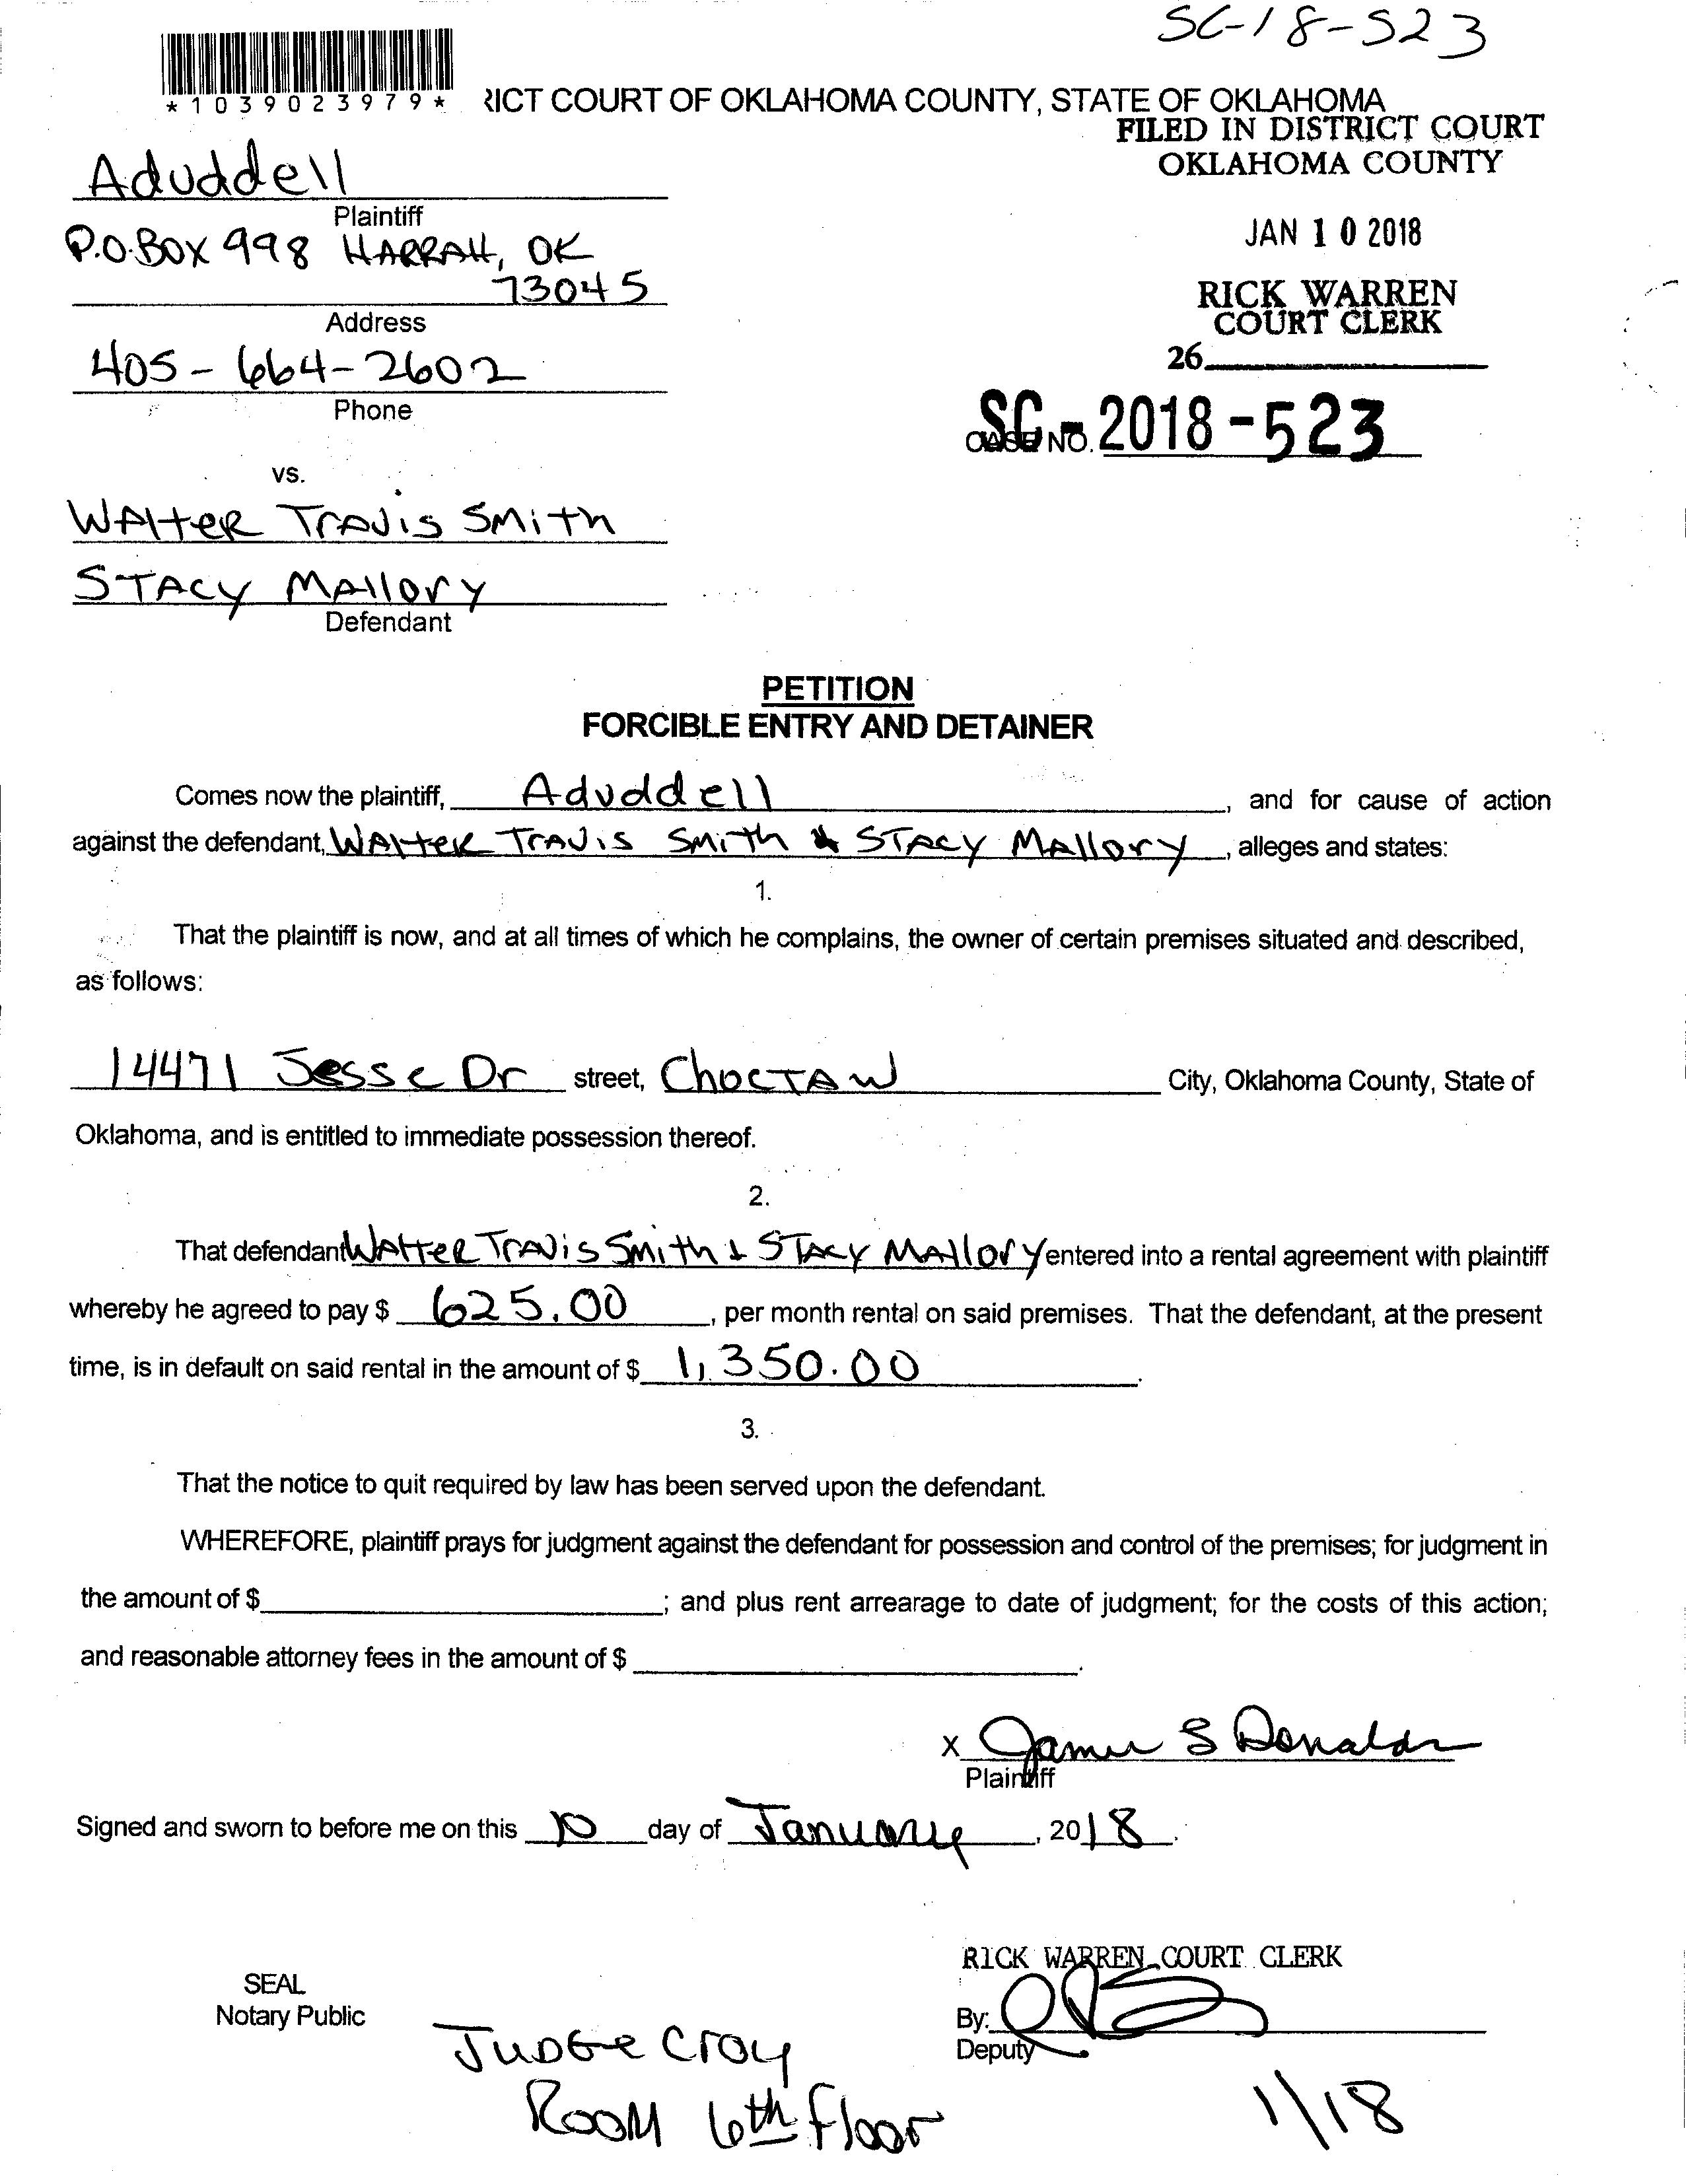 SC-18-523
*1039023979*
RICT COURT OF OKLAHOMA COUNTY, STATE OF OKLAHOMA
FILED IN DISTRICT COURT
OKLAHOMA COUNTY
JAN 10 2018
RICK WARREN
COURT CLERK
26
CASE NO. SC-2018-523
Aduddell
Plaintiff
P.O.BOX 998 HARRAH, OK
73045
Address
405-664-2602
Phone
vs.
WAlteR TrAvis SMith
STACY MAllory
Defendant
PETITION
FORCIBLE ENTRY AND DETAINER
Comes now the plaintiff, Aduddell, and for cause of action
against the defendant, WAlteR TrAvis SMith & STACY MAllory, alleges and states:
1.
That the plaintiff is now, and at all times of which he complains, the owner of certain premises situated and described,
as follows:
14471 Jesse Dr street, ChocTAw City, Oklahoma County, State of
Oklahoma, and is entitled to immediate possession thereof.
2.
That defendant WAlteR TrAvis Smith & STACY MAllory entered into a rental agreement with plaintiff
whereby he agreed to pay $ 625.00, per month rental on said premises. That the defendant, at the present
time, is in default on said rental in the amount of $ 1,350.00.
3.
That the notice to quit required by law has been served upon the defendant.
WHEREFORE, plaintiff prays for judgment against the defendant for possession and control of the premises; for judgment in
the amount of $ ; and plus rent arrearage to date of judgment; for the costs of this action;
and reasonable attorney fees in the amount of $ .
X
Plaintiff
Signed and sworn to before me on this 10 day of January, 2018.
RICK WARREN COURT CLERK
SEAL
Notary Public
By:
Deputy
JuDGe Croy
RooM 6th floor
1/18